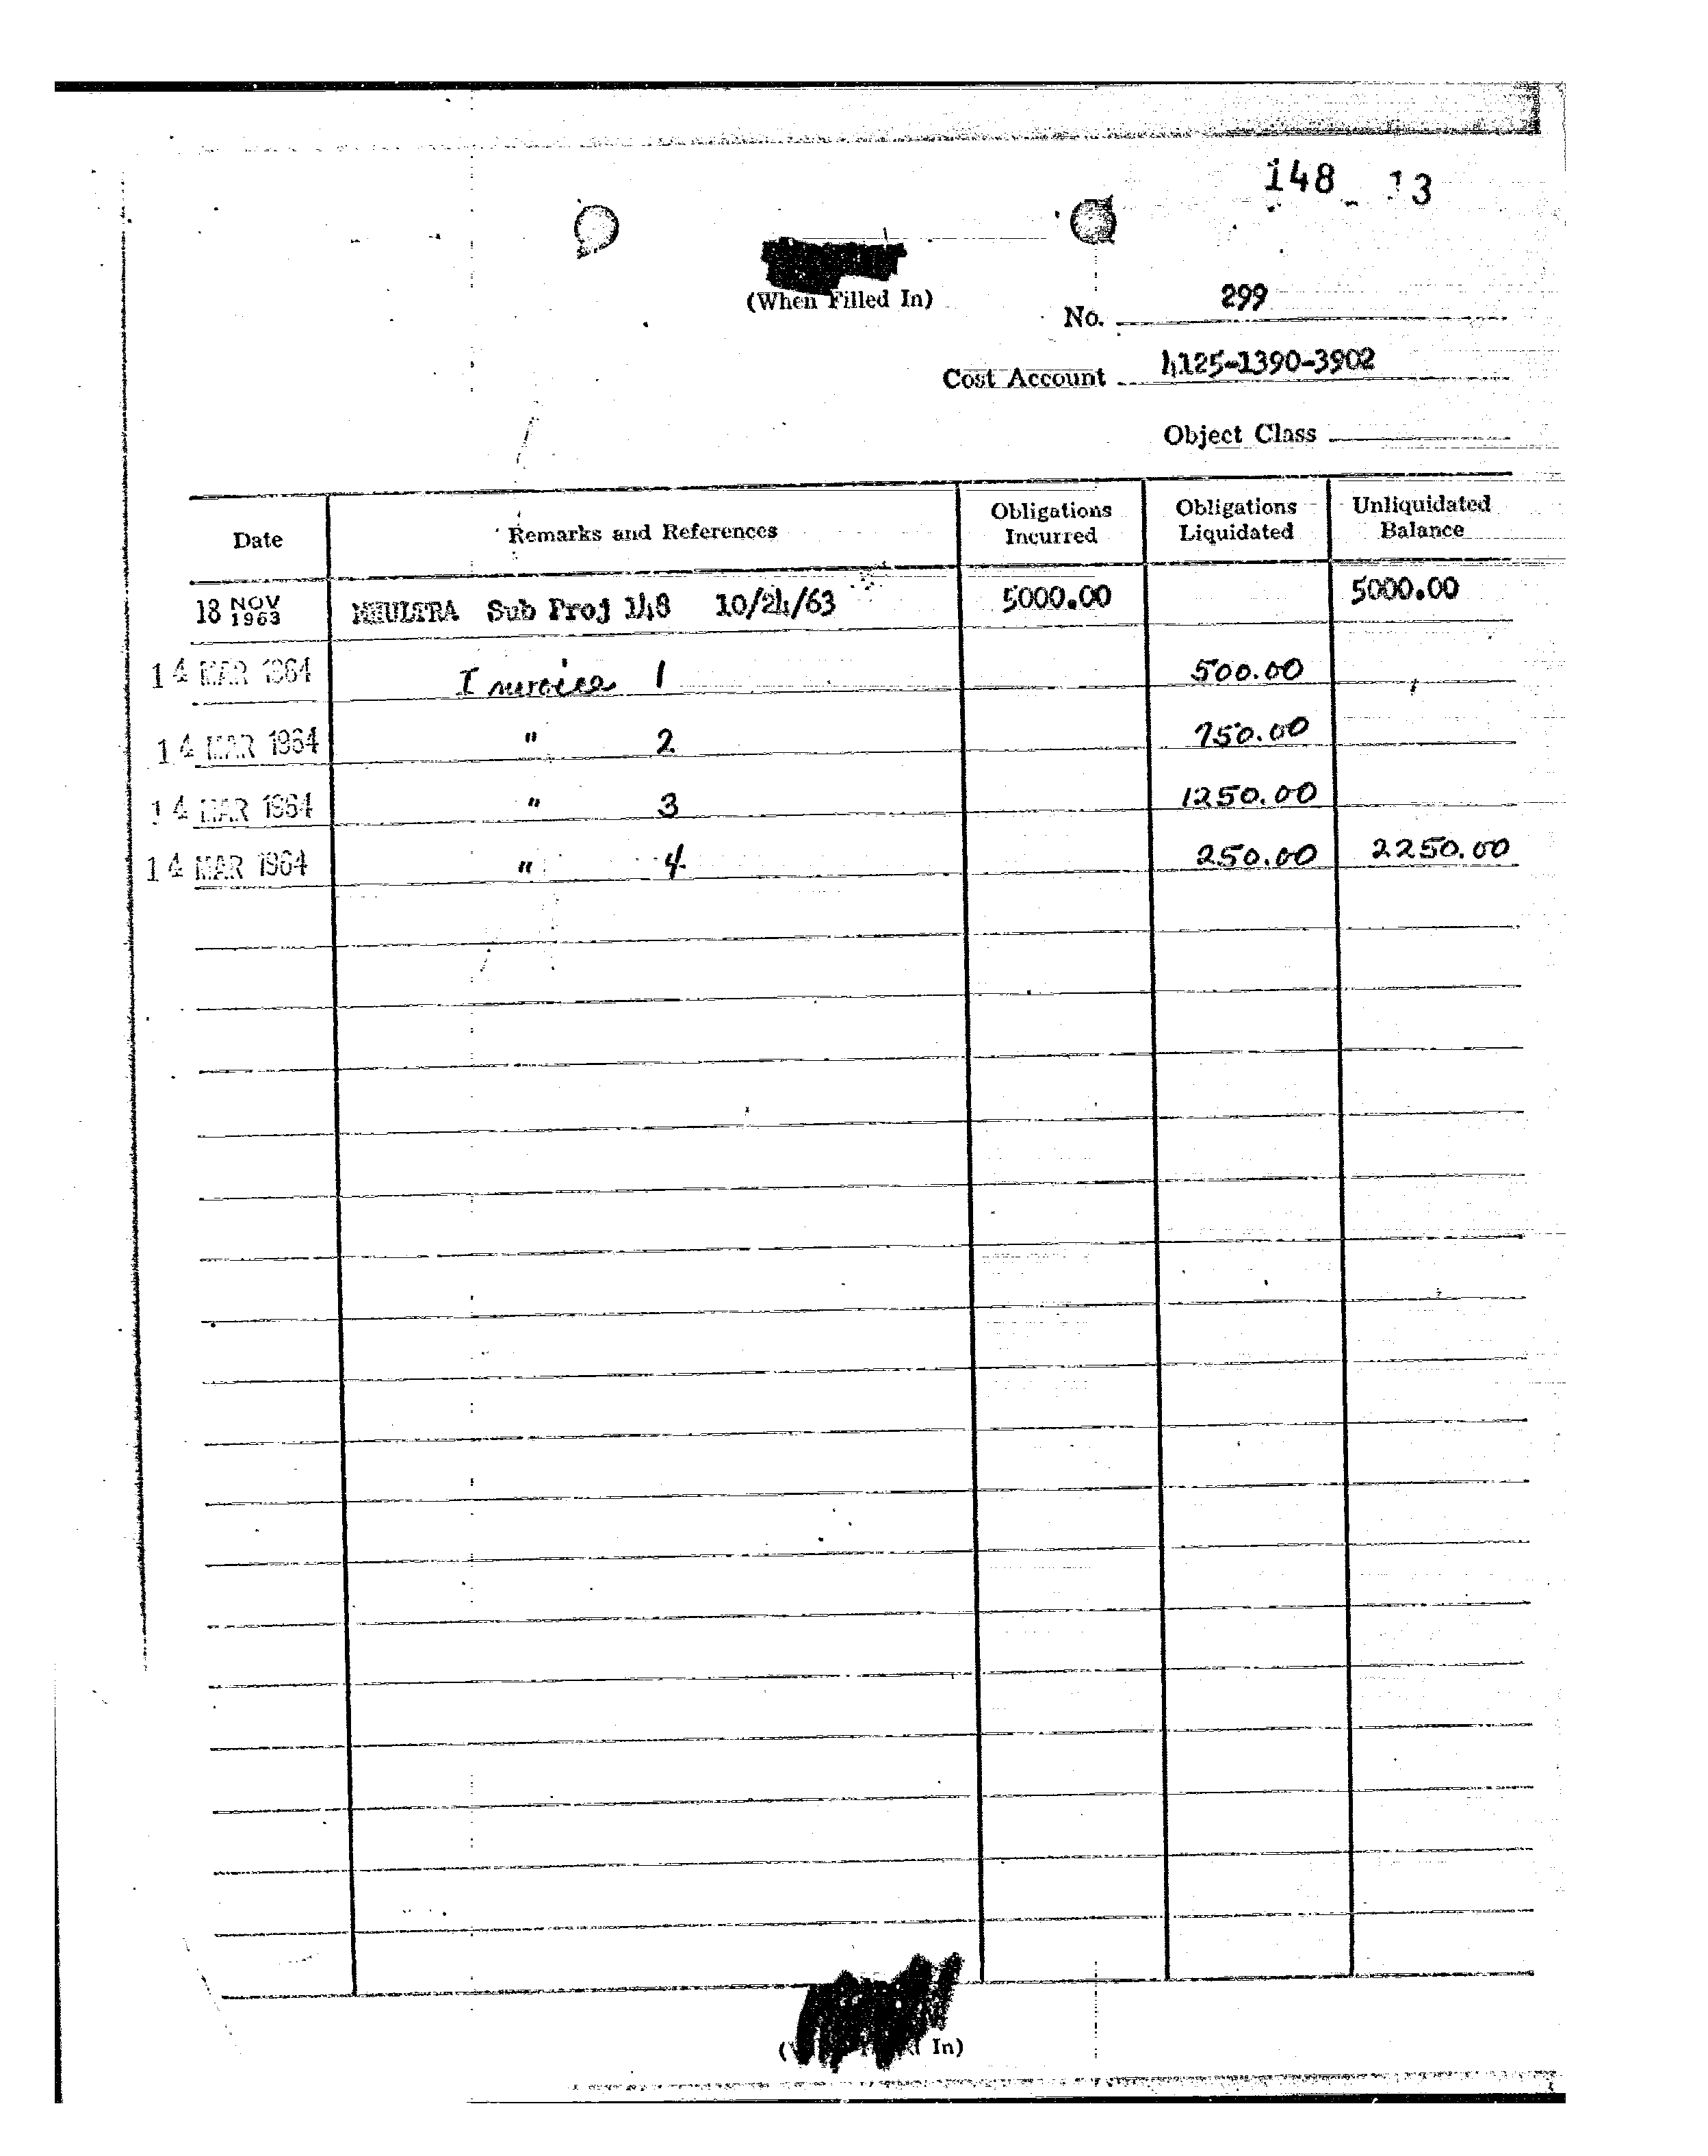 148 13
(When Filled In)
No. 299
Cost Account 4125-1390-3902
Object Class
Date Remarks and References Obligations Incurred Obligations Liquidated Unliquidated Balance
18 NOV 1963 MKULTRA Sub Proj 148 10/24/63 5000.00 5000.00
14 MAR 1964 Invoice 1 500.00
14 MAR 1964 " 2 750.00
14 MAR 1964 " 3 1250.00
14 MAR 1964 " 4 250.00 2250.00
In)